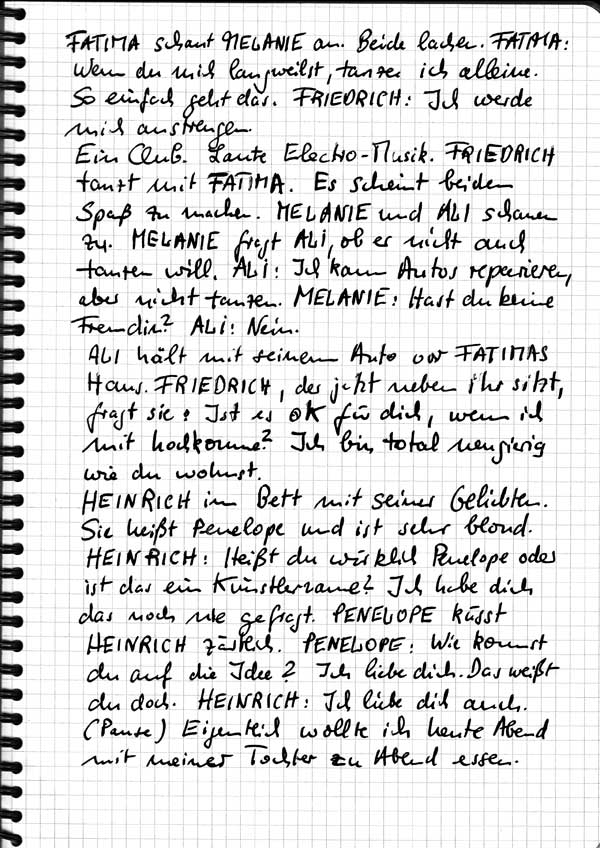 FATIMA schaut MELANIE an. Beide lachen. FATIMA:
Wenn du mich langweilst, tanze ich alleine.
So einfach geht das. FRIEDRICH: Ich werde
mich anstrengen.
Ein Club. Laute Electro-Musik. FRIEDRICH
tanzt mit FATIMA. Es scheint beiden
Spaß zu machen. MELANIE und ALI schauen
zu. MELANIE fragt ALI, ob er nicht auch
tanzen will. ALI: Ich kann Autos reparieren,
aber nicht tanzen. MELANIE: Hast du keine
Freundin? ALI: Nein.
ALI hält mit seinem Auto vor FATIMAS
Haus. FRIEDRICH, der jetzt neben ihr sitzt,
fragt sie: Ist es OK für dich, wenn ich
mit hochkomme? Ich bin total neugierig
wie du wohnst.
HEINRICH im Bett mit seiner Geliebten.
Sie heißt Penelope und ist sehr blond.
HEINRICH: Heißt du wirklich Penelope oder
ist das ein Künstlername? Ich habe dich
das noch nie gefragt. PENELOPE küsst
HEINRICH zärtlich. PENELOPE: Wie kommst
du auf die Idee? Ich liebe dich. Das weißt
du doch. HEINRICH: Ich liebe dich auch.
(Pause) Eigentlich wollte ich heute Abend
mit meiner Tochter zu Abend essen.